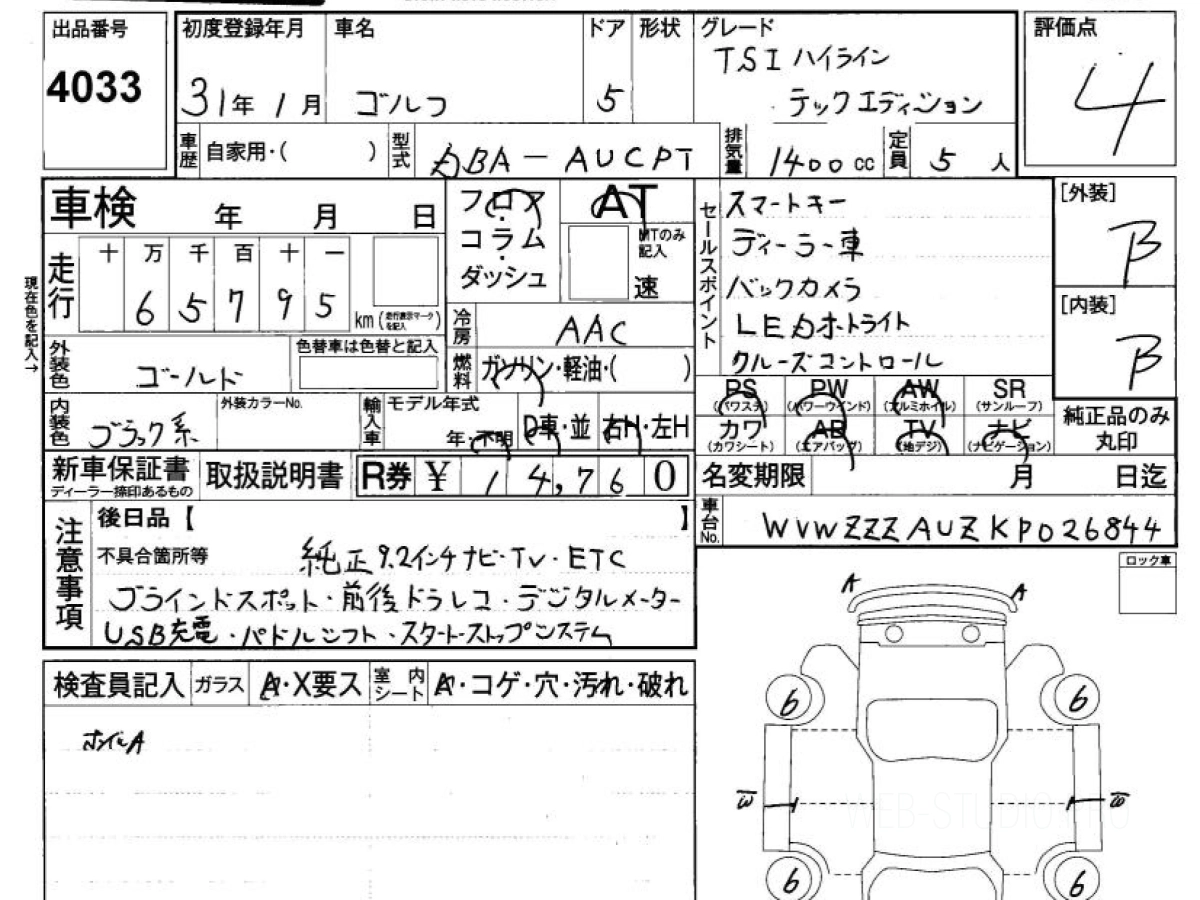 出品番号 初度登録年月 車名 ドア 形状 グレード 評価点
4033 31年 1月 ゴルフ 5 TSI ハイライン
テックエディション 4
車歴 自家用・( ) 型式 DBA-AUCPT 排気量 1400cc 定員 5人
車検 年 月 日
フロア・コラム・ダッシュ
AT
MTのみ記入
速
セールスポイント
スマートキー
ディーラー車
バックカメラ
LEDオートライト
クルーズコントロール
[外装]
B
[内装]
B
現在色を記入→
走行 十 万 千 百 十 一
6 5 7 9 5 km (走行表示マークを記入)
冷房 AAC
外装色 ゴールド 色替車は色替と記入
燃料 ガソリン・軽油・( )
内装色 ブラック系 外装カラーNo.
輸入車 モデル年式 年・不明 D車・並 右H・左H
PS (パワステ) PW (パワーウインド) AW (アルミホイル) SR (サンルーフ)
カワ (カワシート) AB (エアバッグ) TV (地デジ) ナビ (ナビゲーション)
純正品のみ丸印
新車保証書 ディーラー捺印あるもの 取扱説明書 R券 ¥ 14,760
名変期限 月 日迄
車台No. WVWZZZAUZKP026844
注意事項
後日品【 】
不具合箇所等 純正9.2インチナビ・TV・ETC
ブラインドスポット・前後ドラレコ・デジタルメーター
USB充電・パドルシフト・スタートストップシステム
ロック車
A A
検査員記入 ガラス A・X要ス 室内シート A・コゲ・穴・汚れ・破れ
ホイルA
6 6
W W
WEB-STUDIO.PRO
6 6